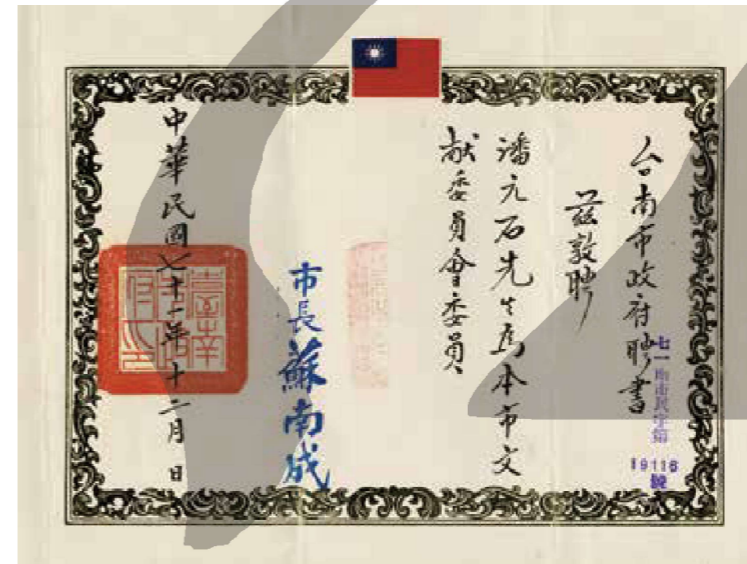 台南市政府聘書
七一南市民字第
19116
號
茲敦聘
潘元石先生為本市文
献委員會委員
市長蘇南成
中華民國七十一年十二月 日